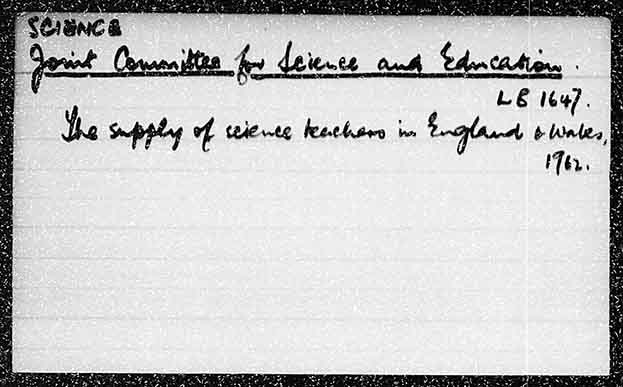 SCIENCE
Joint Committee for Science and Education.
LB 1647.
The supply of science teachers in England & Wales,
1962.